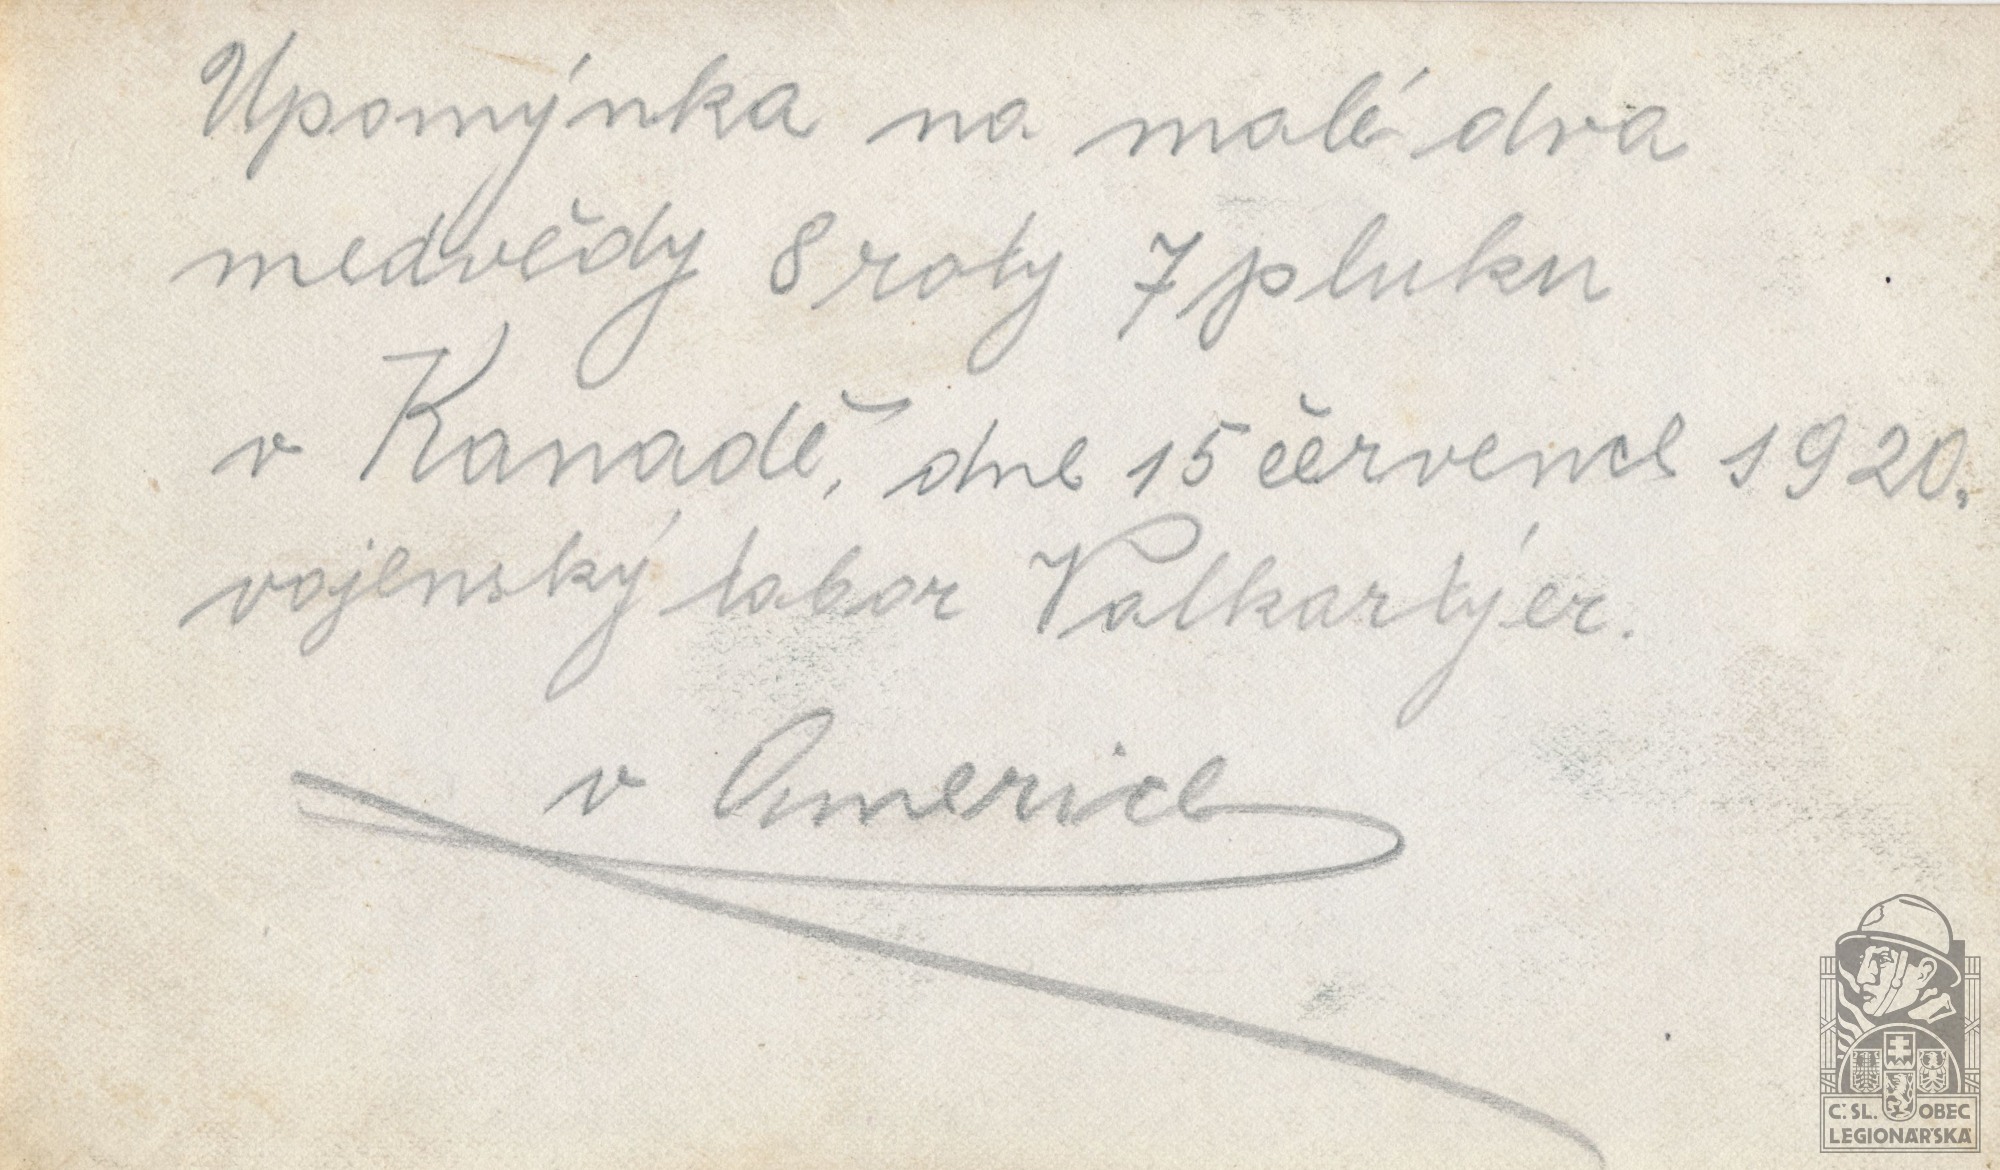 Upomýnka na malé dva
medvědy 8 roty 7 pluku
v Kanadě, dne 15 července 1920.
vojenský tabor Valkartýer.
v Americe
Č. SL. OBEC
LEGIONÁŘSKÁ